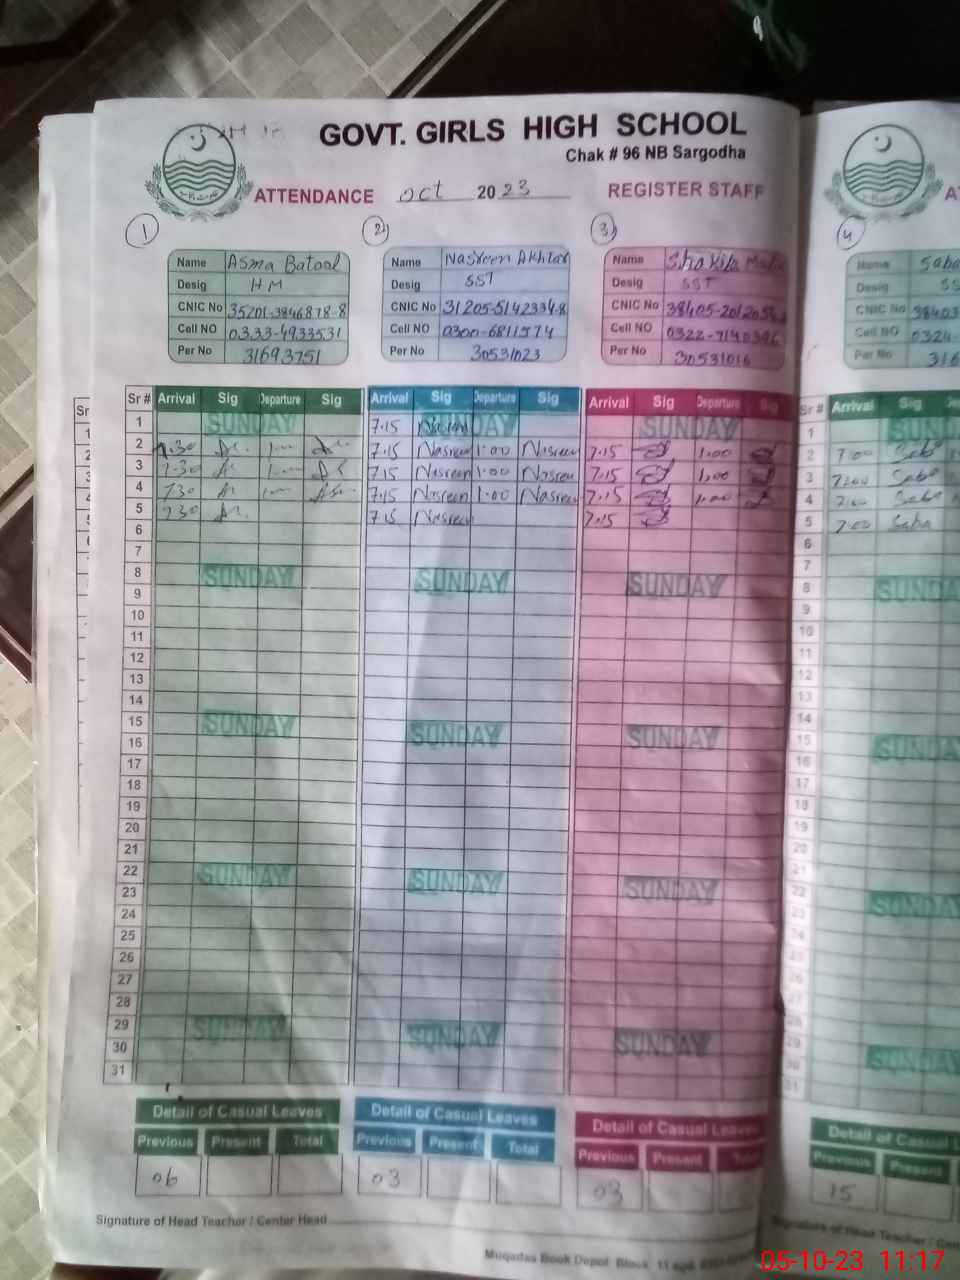 GOVT. GIRLS HIGH SCHOOL
Chak # 96 NB Sargodha
ATTENDANCE Oct 2023 REGISTER STAFF
1 2 3 4
Name Asma Batool Name Nasreen Akhtar Name Shakila Name Saba
Desig HM Desig SST Desig SST Desig SS
CNIC No 35201-3846878-8 CNIC No 31205-5142334-8 CNIC No 38405- CNIC No 38403
Cell NO 0333-4933531 Cell NO 0300-6811574 Cell NO 0322- Cell NO 0324-
Per No 31693751 Per No 30531023 Per No 30531016 Per No 316
Sr # Arrival Sig Departure Sig Arrival Sig Departure Sig Arrival Sig Departure Sig Sr # Arrival Sig
1 SUNDAY 7.15 SUNDAY SUNDAY 1 SUNDAY
2 7.30 7.15 Nasreen 1.00 Nasreen 7.15 1.00 2 7.00 Saba
3 7.30 7.15 Nasreen 1.00 Nasreen 7.15 1.00 3 7.00 Saba
4 7.30 7.15 Nasreen 1.00 Nasreen 7.15 1.00 4 7.00 Saba
5 7.30 7.15 Nasreen 7.15 5 7.00 Saba
6 6
7 7
8 SUNDAY SUNDAY SUNDAY 8 SUNDAY
9 9
10 10
11 11
12 12
13 13
14 14
15 SUNDAY SUNDAY SUNDAY 15 SUNDAY
16 16
17 17
18 18
19 19
20 20
21 21
22 SUNDAY SUNDAY SUNDAY 22 SUNDAY
23 23
24 24
25 25
26 26
27 27
28 28
29 SUNDAY SUNDAY SUNDAY 29 SUNDAY
30 30
31 31
Detail of Casual Leaves Detail of Casual Leaves Detail of Casual Leaves Detail of Casual
Previous Present Total Previous Present Total Previous Present Total Previous Present
06 03 03 15
Signature of Head Teacher / Center Head
Muqadas Book Depot Block 11
05-10-23 11:17